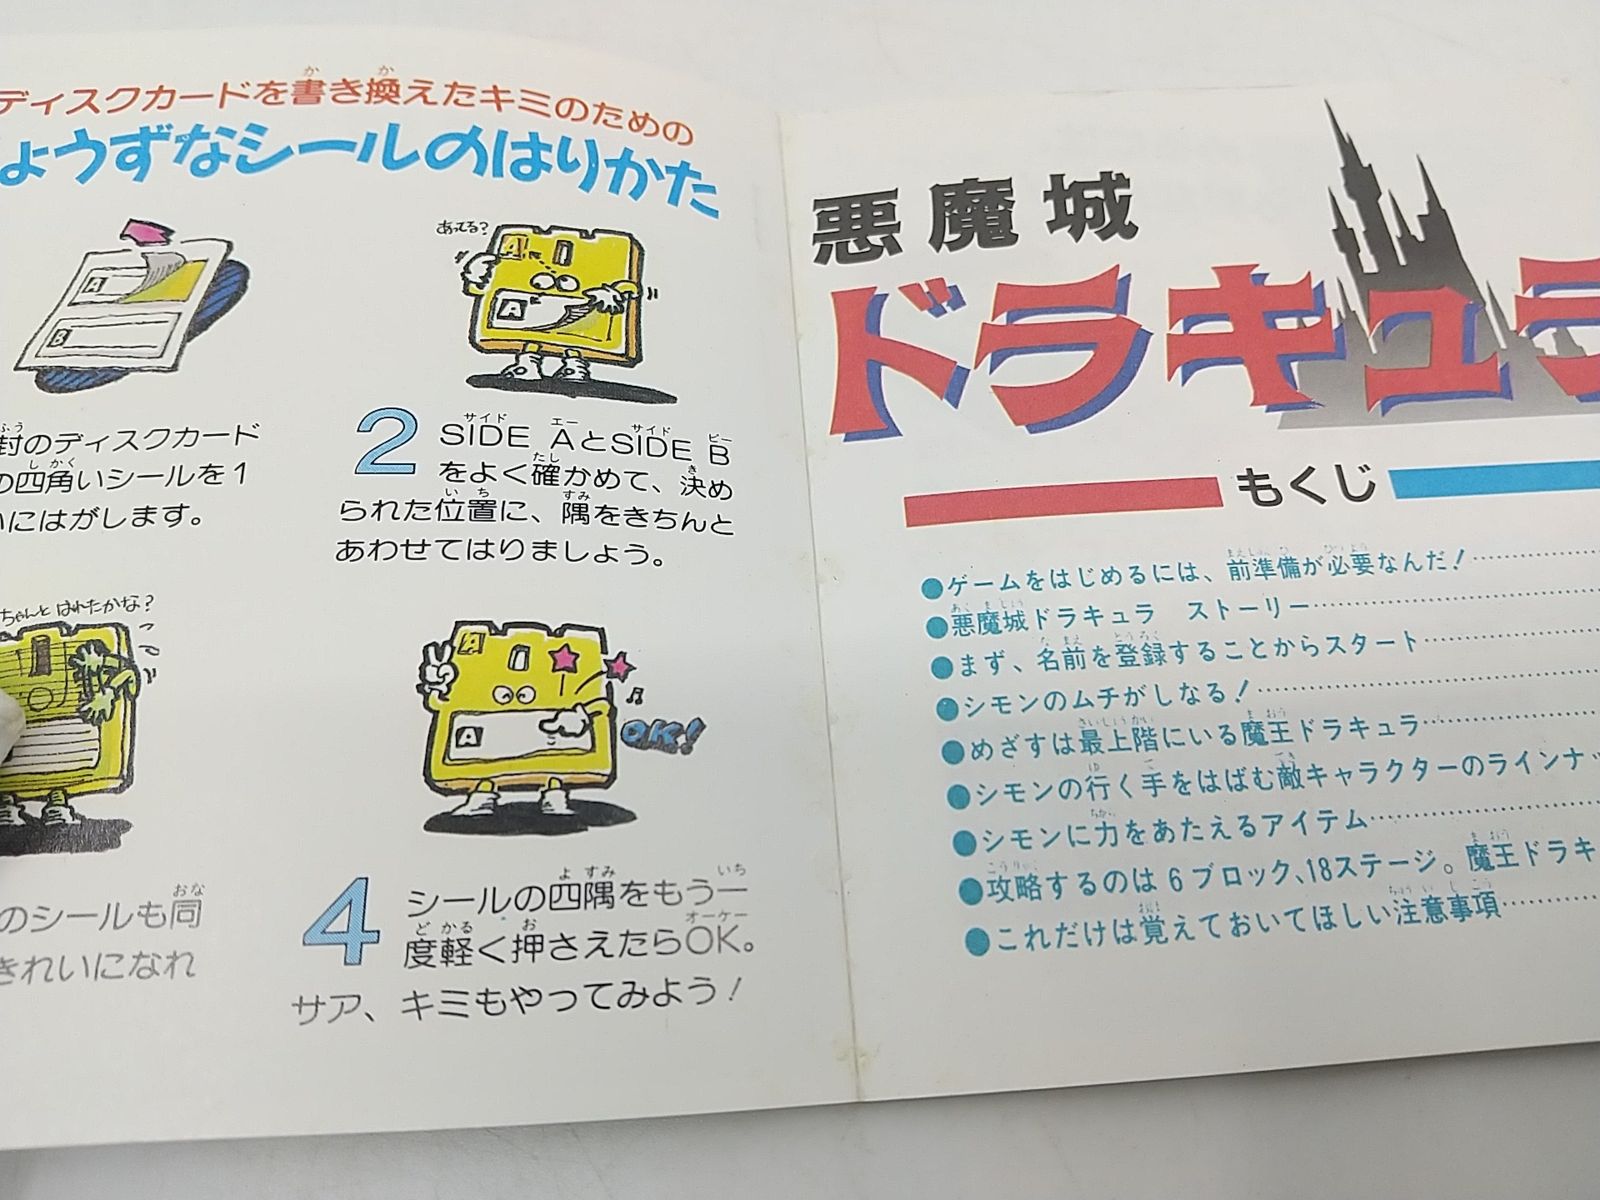 ディスクカードを書き換えたキミのための
ょうずなシールのはりかた
A
B
封のディスクカード
の四角いシールを1
いにはがします。
あってる?
A
A
2 SIDE AとSIDE B
をよく確かめて、決め
られた位置に、隅をきちんと
あわせてはりましょう。
ちゃんとはれたかな?
のシールも同
きれいになれ
A
A
OK!
4 シールの四隅をもう一
度軽く押さえたらOK。
サア、キミもやってみよう!
悪魔城
ドラキュラ
もくじ
●ゲームをはじめるには、前準備が必要なんだ!
●悪魔城ドラキュラ ストーリー
●まず、名前を登録することからスタート
●シモンのムチがしなる!
●めざすは最上階にいる魔王ドラキュラ
●シモンの行く手をはばむ敵キャラクターのラインナッ
●シモンに力をあたえるアイテム
●攻略するのは6ブロック、18ステージ。魔王ドラキ
●これだけは覚えておいてほしい注意事項